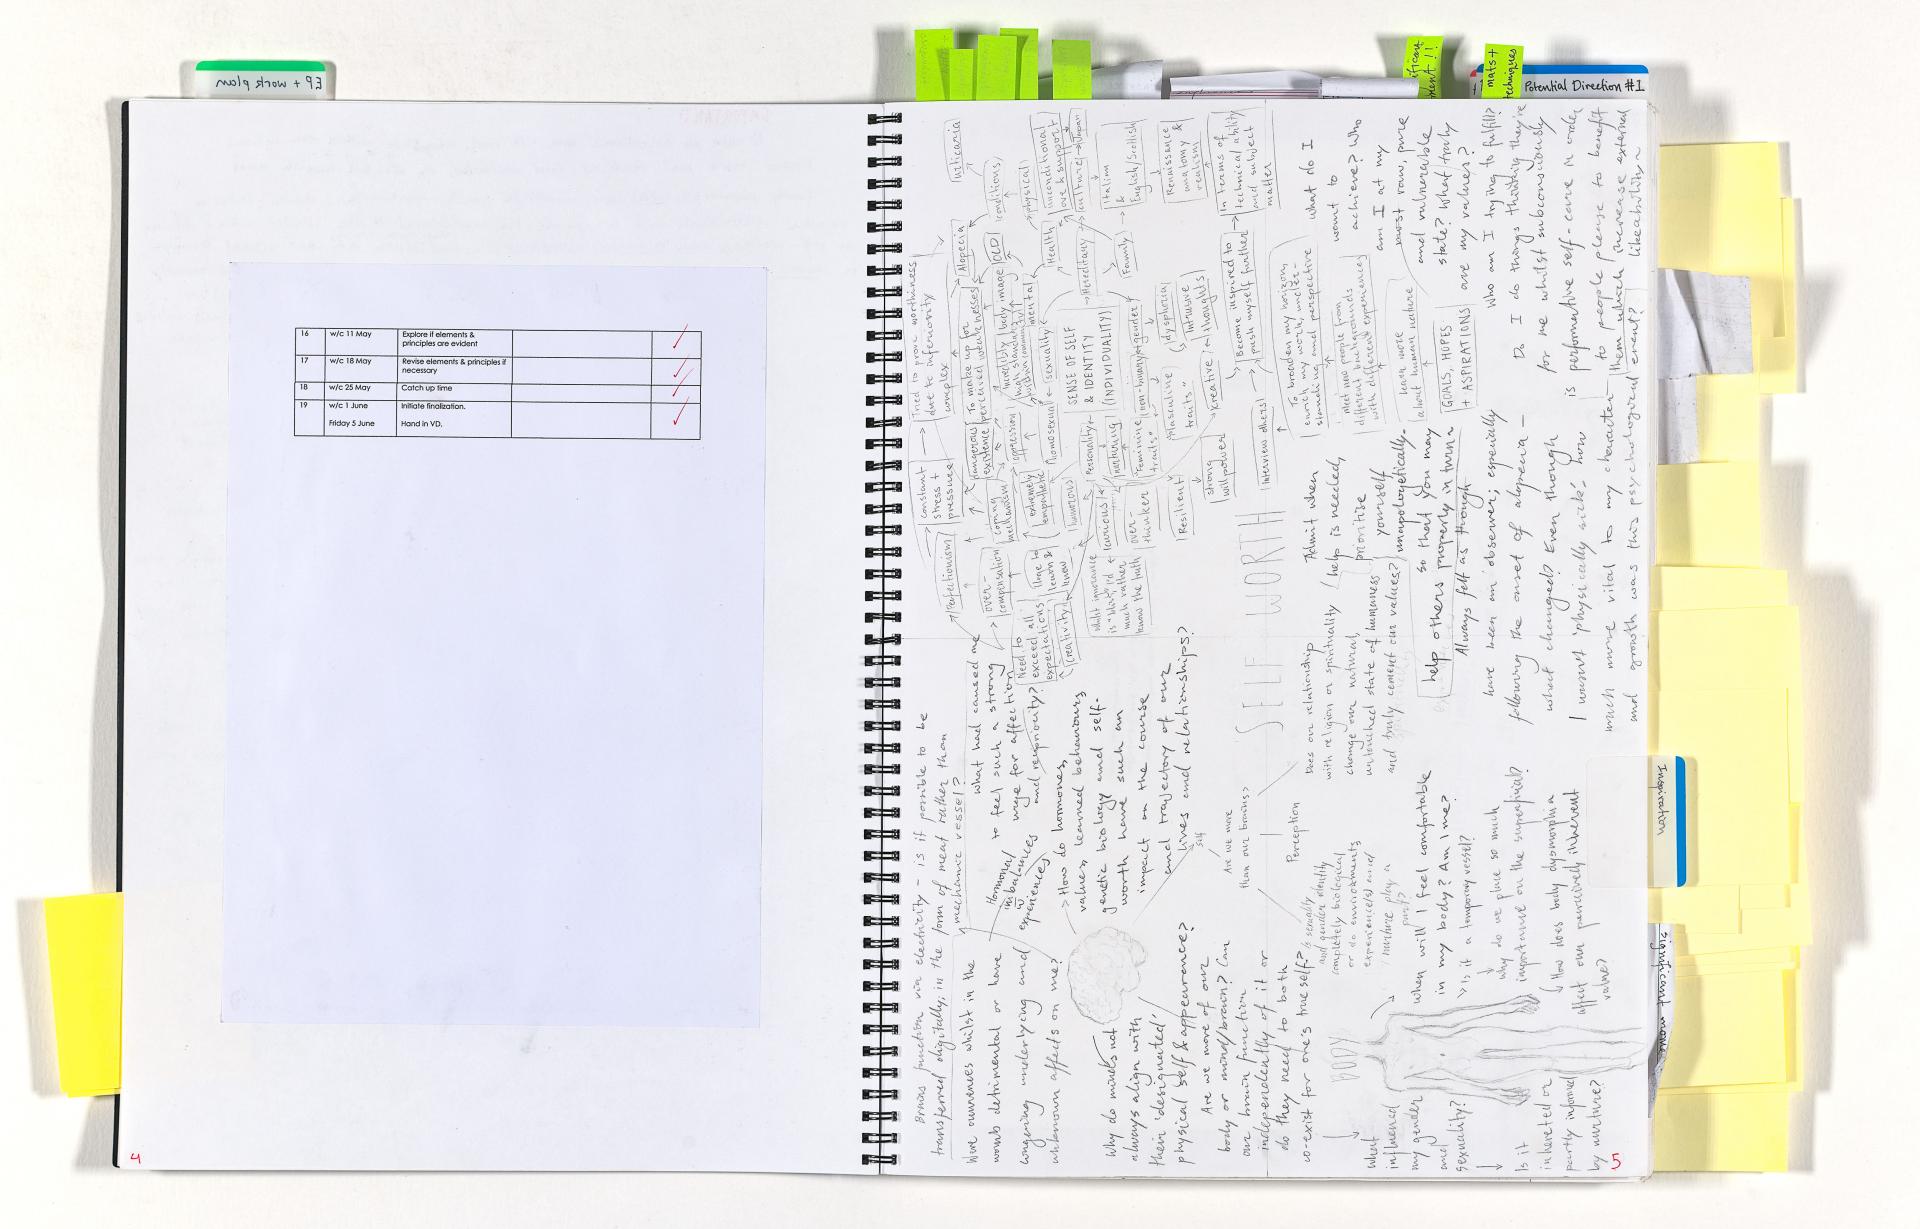 EP + work plan
16 w/c 11 May Explore if elements &
principles are evident
17 w/c 18 May Revise elements & principles if
necessary
18 w/c 25 May Catch up time
19 w/c 1 June Initiate finalization.
Friday 5 June Hand in VD.
4
mats +
techniques
Potential Direction #1
Inspiration
Brains function via electricity – is it possible to be
transferred digitally, in the form of meat rather than
mechanic vessel?
Were occurences whilst in the
womb detrimental or have
lingering underlying and
unknown affects on me?
Hormonal
imbalances
experiences
what had caused me
to feel such a strong
urge for affection
and reciprocity?
> How do hormones,
values, learned behaviours,
genetic biology and self-
worth have such an
impact on the course
and trajectory of our
lives and relationships?
Why do minds not
always align with
their 'designated'
physical self & appearence?
Are we more of our
body or mind/brain? Can
our brain function
independently of it or
do they need to both
co-exist for one's true self?
self
Are we more
than our brains?
Perception
Is sexuality
and gender identity
completely biological
or do environments
nurture play a
part?
BODY
What
influenced
my gender
and
sexuality?
Is it
inhereted or
partly informed
by nurture?
When will I feel comfortable
in my body? Am I me?
> Is it a temporary vessel?
Why do we place so much
importance on the superficial?
How does body dysmorphia
affect our percieved inherent
value?
SELF WORTH
Does our relationship
with religion or spirituality
change our natural,
untouched state of humaness
and truly cement our values?
Admit when
help is needed,
prioritise
yourself
unapologetically
so that you may
help others properly in turn
Always felt as though
have been an observer; especially
following the onset of alopecia –
what changed? Even though
I wasn't 'physically sick' how is
much more vital to my character
and growth was this psychological event?
Perfectionism
constant
stress +
pressure
Tried to prove worthiness
due to inferiority
complex
Alopecia
Urticaria
conditions
OCD
physical
mental
Health
over-
compensation
coping
mechanism
dangerous
existence
To make up for
perceived weaknesses
Incredibly body image
high standards
oppression
Need to
exceed all
expectations
Creativity
love to
learn &
know
extremely
empathetic
homosexual
sexuality
humorous
Personality
SENSE OF SELF
& IDENTITY
(INDIVIDUALITY)
Hereditary
Family
unconditional
love & support
culture
Italian
&
English/Scottish
Renaissance
anatomy &
realism
In terms of
technical ability
and subject
matter
whilst ignorance
is bliss, I'd
much rather
know the truth
curious
over-
thinker
nurturing
"Feminine
traits"
"Masculine
traits"
non-binary
gender
dysphoria
Intrusive
thoughts
Resilient
strong
willpower
creative
Become inspired to
push myself further
Interview others
To broaden my horizon,
enrich my work, under-
standing and perspective
meet new people from
different backgrounds
with different experiences
learn more
about human nature
GOALS, HOPES
+ ASPIRATIONS
What do I
want to
achieve? Who
am I at my
most raw, pure
and vulnerable
state? What truly
are my values?
Who am I trying to fulfill?
Do I do things thinking they're
for me whilst subconsciously
performative self-care in order
to people please to benefit
them which increase external
likeability~
5